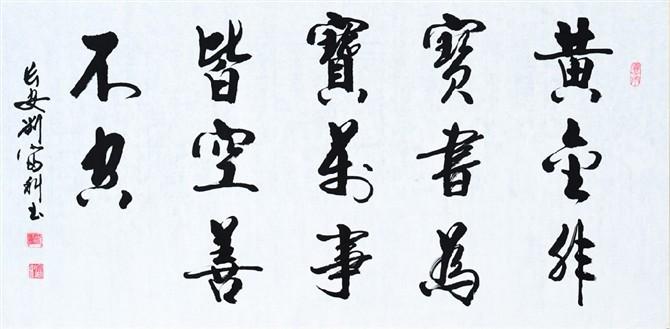 黄金非
寶書為
寶萬事
皆空善
不空
長安劉富科書